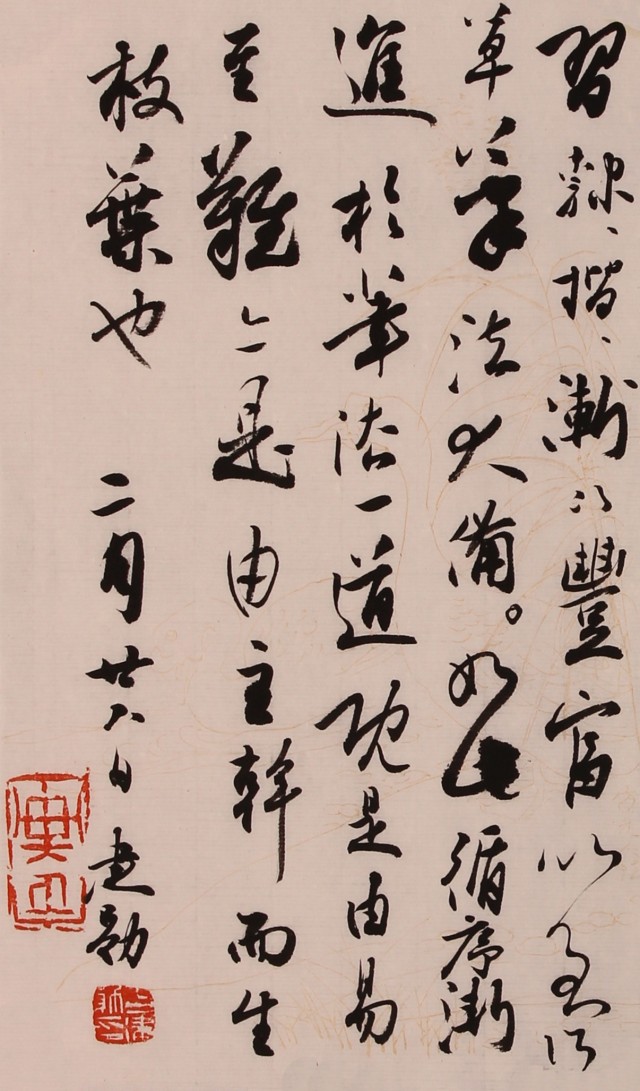 習隸、楷、漸次豐富以至行
草筆法大備。如此循序漸
進於筆法一道既是由易
至難亦是由主幹而生
枝葉也 二月廿八日